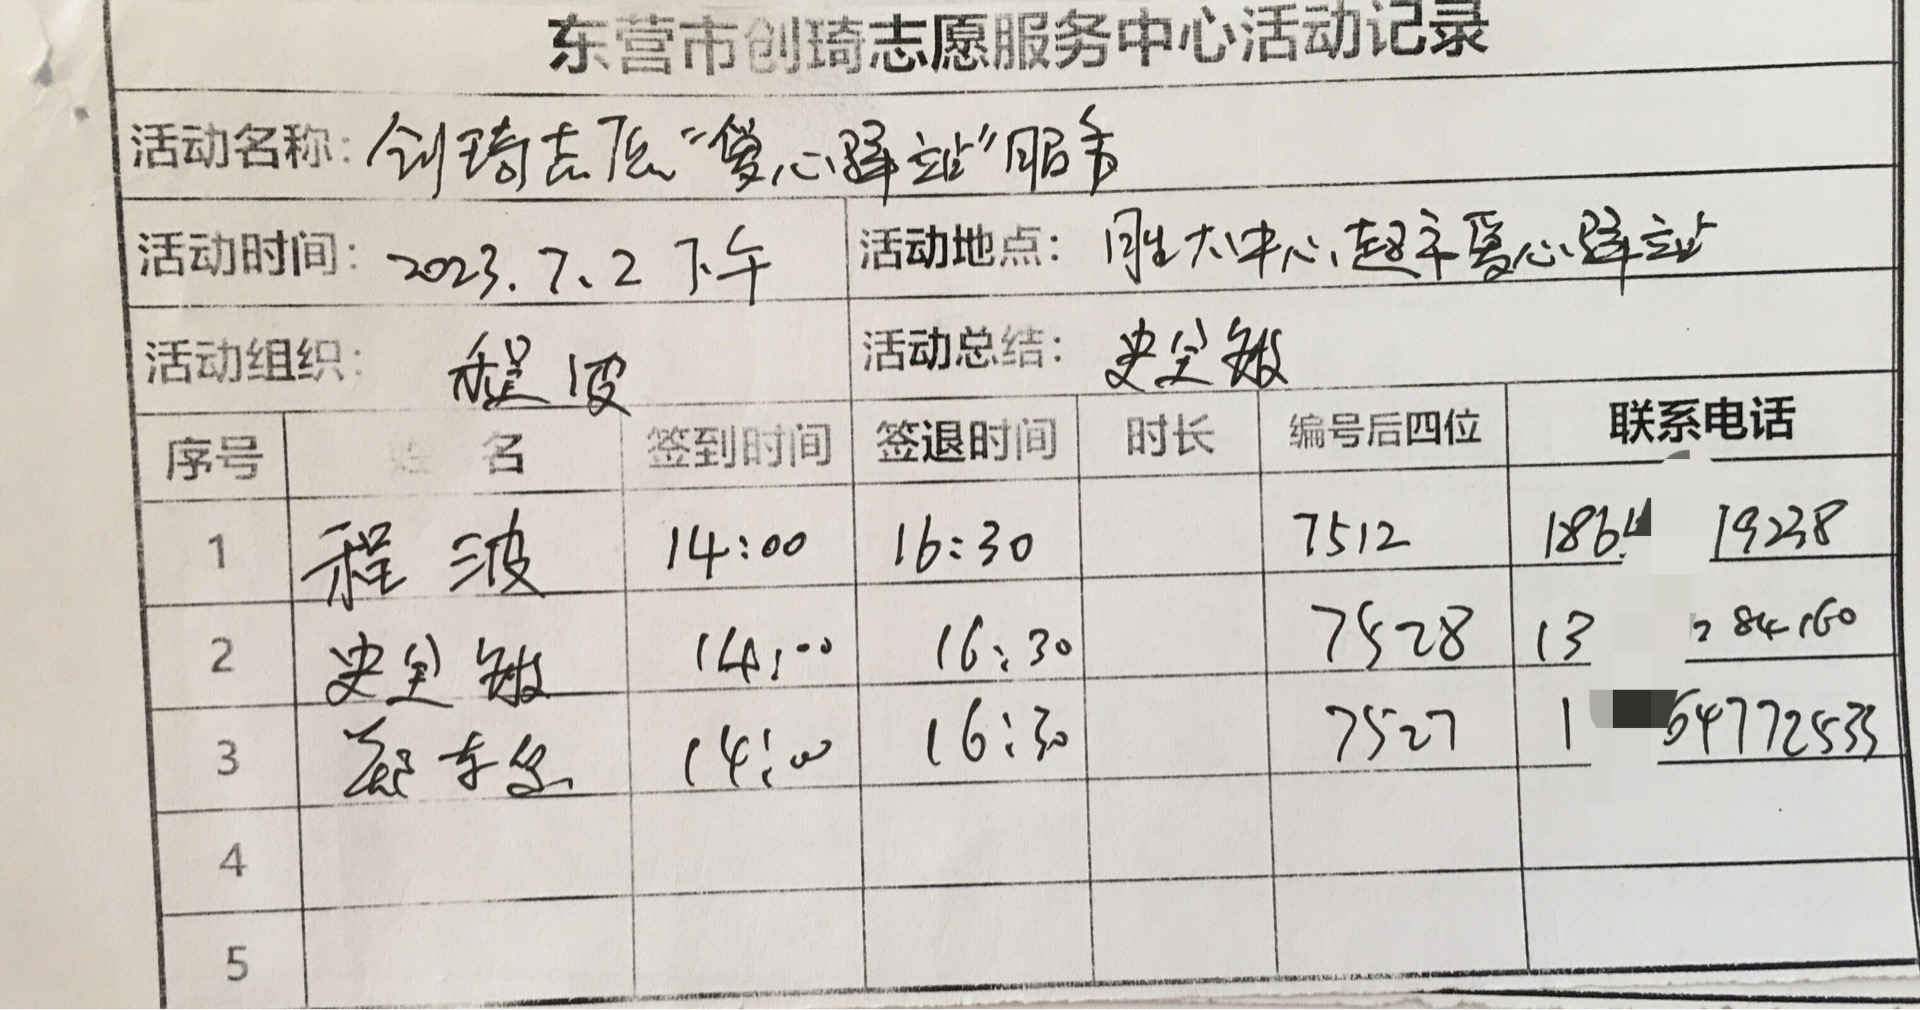 东营市创琦志愿服务中心活动记录
活动名称: 创琦志愿“爱心驿站”服务
活动时间: 2023.7.2 下午 活动地点: 胜大中心超市爱心驿站
活动组织: 程波 活动总结: 史宝敏
序号 姓 名 签到时间 签退时间 时长 编号后四位 联系电话
1 程 波 14:00 16:30 7512 186 19238
2 史宝敏 14:00 16:30 7528 13 284160
3 14:00 16:30 7527 1 64772533
4
5